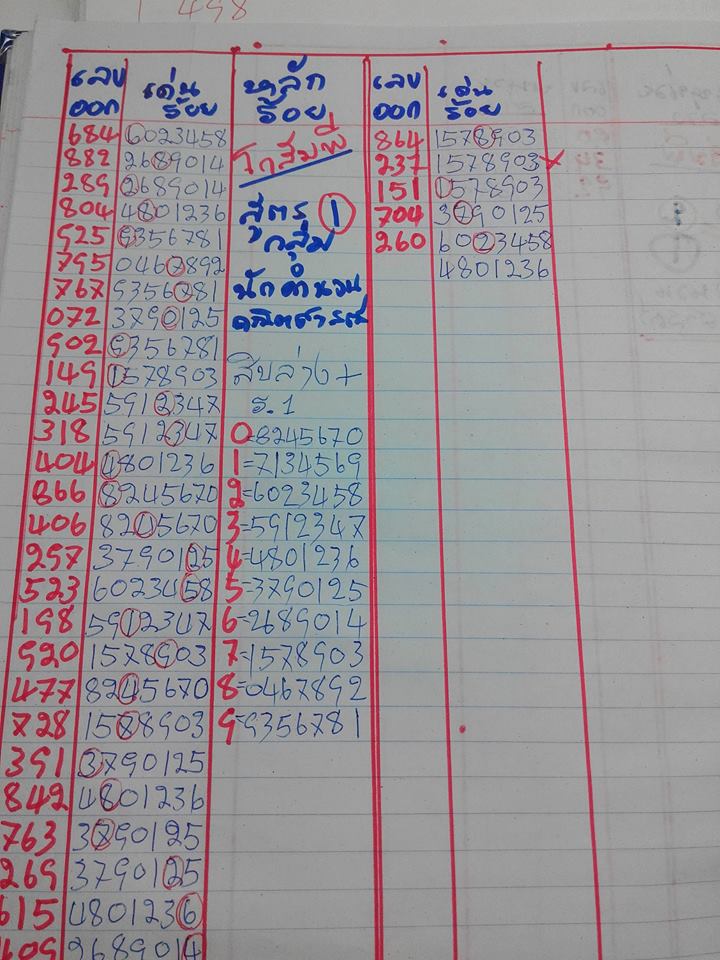 498
เลข
ออก
เด่น
ร้อย
หลัก
ร้อย
เลข
ออก
เด่น
ร้อย
684 6023458
882 2689014
289 2689014
804 4801236
925 9356781
795 0467892
767 9356781
072 3790125
902 9356781
149 1578903
245 5912347
318 5912347
404 4801236
866 8245670
406 8245670
297 3790125
523 6023458
198 5912347
920 1578903
477 8245670
728 1578903
391 3790125
842 4801236
763 3790125
269 3790125
615 4801236
609 2689014
สูตร 1
กลุ่ม
นักคำนวน
คณิตศาสตร์
สิบล่าง +
ร.1
0=8245670
1=7134569
2=6023458
3=5912347
4=4801236
5=3790125
6=2689014
7=1578903
8=0467892
9=9356781
864 1578903
237 1578903 x
151 1578903
704 3790125
260 6023458
4801236